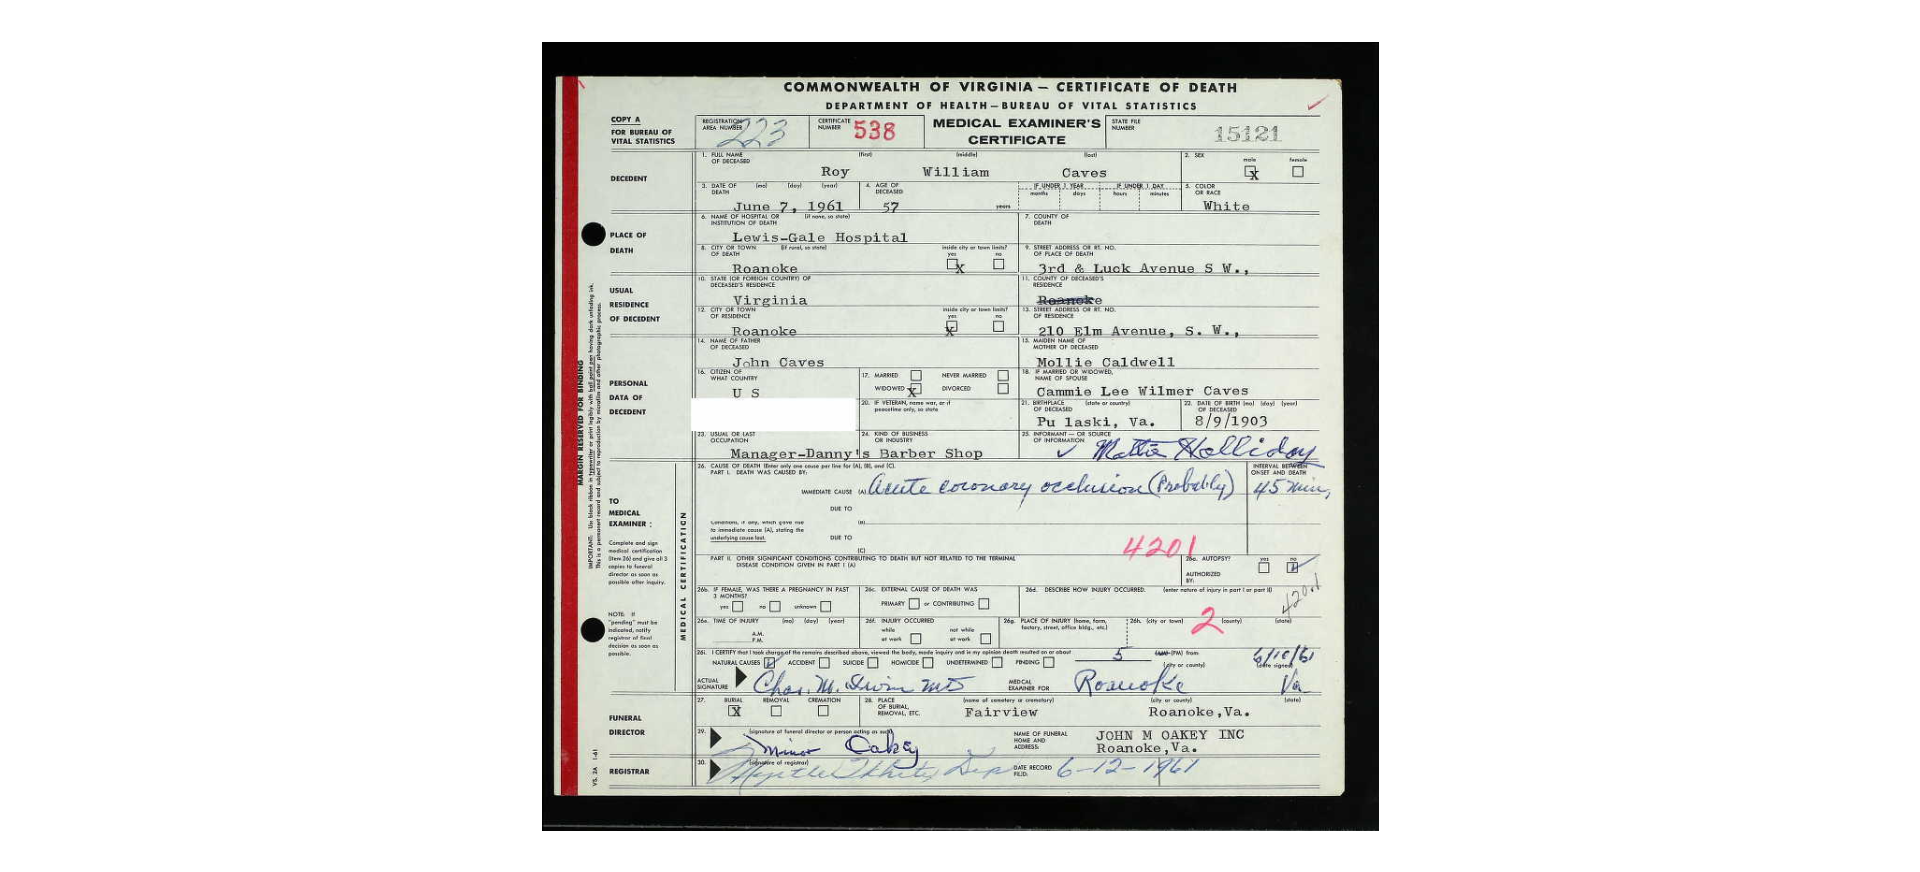 COMMONWEALTH OF VIRGINIA — CERTIFICATE OF DEATH
DEPARTMENT OF HEALTH — BUREAU OF VITAL STATISTICS
COPY A
FOR BUREAU OF
VITAL STATISTICS
REGISTRATION
AREA NUMBER 223
CERTIFICATE
NUMBER 538
MEDICAL EXAMINER'S
CERTIFICATE
STATE FILE
NUMBER 15121
DECEDENT
1. FULL NAME (first) (middle) (last)
OF DECEASED
Roy William Caves
2. SEX male female
X
3. DATE OF (mo) (day) (year)
DEATH
June 7, 1961
4. AGE OF
DECEASED
57 years
IF UNDER 1 YEAR IF UNDER 1 DAY
months days hours minutes
5. COLOR
OR RACE
White
PLACE OF
DEATH
6. NAME OF HOSPITAL OR (if none, so state)
INSTITUTION OF DEATH
Lewis-Gale Hospital
7. COUNTY OF
DEATH
8. CITY OR TOWN (if rural, so state) inside city or town limits?
OF DEATH yes no
Roanoke X
9. STREET ADDRESS OR RT. NO.
OF PLACE OF DEATH
3rd & Luck Avenue S W.,
USUAL
RESIDENCE
OF DECEDENT
10. STATE (OR FOREIGN COUNTRY) OF
DECEASED'S RESIDENCE
Virginia
11. COUNTY OF DECEASED'S
RESIDENCE
Roanoke
12. CITY OR TOWN inside city or town limits?
OF RESIDENCE yes no
Roanoke X
13. STREET ADDRESS OR RT. NO.
OF RESIDENCE
210 Elm Avenue, S. W.,
PERSONAL
DATA OF
DECEDENT
14. NAME OF FATHER
OF DECEASED
John Caves
15. MAIDEN NAME OF
MOTHER OF DECEASED
Mollie Caldwell
16. CITIZEN OF
WHAT COUNTRY
U S
17. MARRIED NEVER MARRIED
WIDOWED X DIVORCED
18. IF MARRIED OR WIDOWED,
NAME OF SPOUSE
Cammie Lee Wilmer Caves
20. IF VETERAN, name war, or if
peacetime only, so state
21. BIRTHPLACE (state or country)
OF DECEASED
Pu laski, Va.
22. DATE OF BIRTH (mo) (day) (year)
OF DECEASED
8/9/1903
23. USUAL OR LAST
OCCUPATION
24. KIND OF BUSINESS
OR INDUSTRY
Manager-Danny's Barber Shop
25. INFORMANT — OR SOURCE
OF INFORMATION
Mattie Holliday
TO
MEDICAL
EXAMINER :
Complete and sign
medical certification
(Item 26) and give all 3
copies to funeral
director as soon as
possible after inquiry.
NOTE: If
"pending" must be
indicated, notify
registrar of final
decision as soon as
possible.
MEDICAL CERTIFICATION
26. CAUSE OF DEATH (Enter only one cause per line for (A), (B), and (C).
PART I. DEATH WAS CAUSED BY:
IMMEDIATE CAUSE (A) Acute coronary occlusion (Probably)
INTERVAL BETWEEN
ONSET AND DEATH
45 min,
DUE TO
Conditions, if any, which gave rise (B)
to immediate cause (A), stating the
underlying cause last. DUE TO
(C)
4201
PART II. OTHER SIGNIFICANT CONDITIONS CONTRIBUTING TO DEATH BUT NOT RELATED TO THE TERMINAL
DISEASE CONDITION GIVEN IN PART I (A)
26a. AUTOPSY? yes no
AUTHORIZED
BY:
26b. IF FEMALE, WAS THERE A PREGNANCY IN PAST
3 MONTHS?
yes no unknown
26c. EXTERNAL CAUSE OF DEATH WAS
PRIMARY or CONTRIBUTING
26d. DESCRIBE HOW INJURY OCCURRED. (enter nature of injury in part I or part II)
420.1
26e. TIME OF INJURY (mo) (day) (year)
A.M.
P.M.
26f. INJURY OCCURRED
while not while
at work at work
26g. PLACE OF INJURY (home, farm,
factory, street, office bldg., etc.)
26h. (city or town) (county) (state)
2
26i. I CERTIFY that I took charge of the remains described above, viewed the body, made inquiry and in my opinion death resulted on or about
5 (AM) (PM) from 6/10/61
NATURAL CAUSES ACCIDENT SUICIDE HOMICIDE UNDETERMINED PENDING (city or county) (date signed)
ACTUAL
SIGNATURE Chas. M. Irvin MD
MEDICAL
EXAMINER FOR Roanoke Va
FUNERAL
DIRECTOR
27. BURIAL REMOVAL CREMATION
X
28. PLACE (name of cemetery or crematory) (city or county) (state)
OF BURIAL,
REMOVAL, ETC.
Fairview Roanoke,Va.
29. (signature of funeral director or person acting as such)
Minor Oakey
NAME OF FUNERAL
HOME AND
ADDRESS:
JOHN M OAKEY INC
Roanoke,Va.
REGISTRAR
30. (signature of registrar)
Myrtle White, Dep
DATE RECORD
FILED: 6-12-1961
VS. 2A 1-61
MARGIN RESERVED FOR BINDING
IMPORTANT: Use black ribbon in typewriter or print legibly with ball point pen having dark unfading ink.
This is a permanent record and subject to reproduction by microfilm and other photographic process.